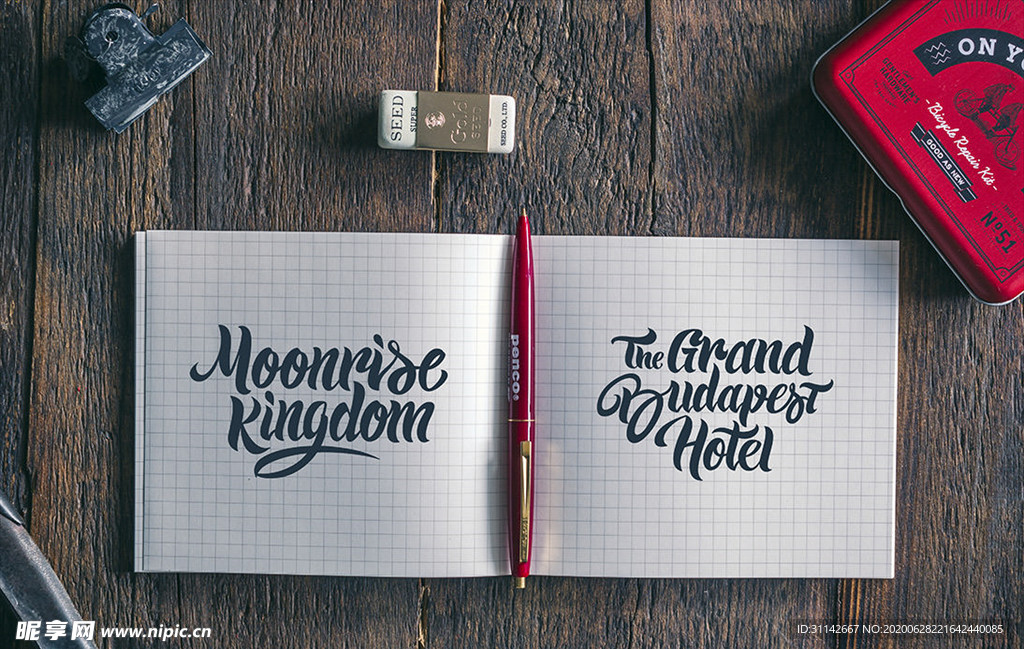 SEED
SUPER
Gold
SEED
SEED CO., LTD.
ON YO
GENTLEMEN'S
HARDWARE
-Bicycle Repair Kit-
GOOD AS NEW
Nº51
penco®
Moonrise
Kingdom
The Grand
Budapest
Hotel
昵享网 www.nipic.cn
ID:31142667 NO:20200628221642440085